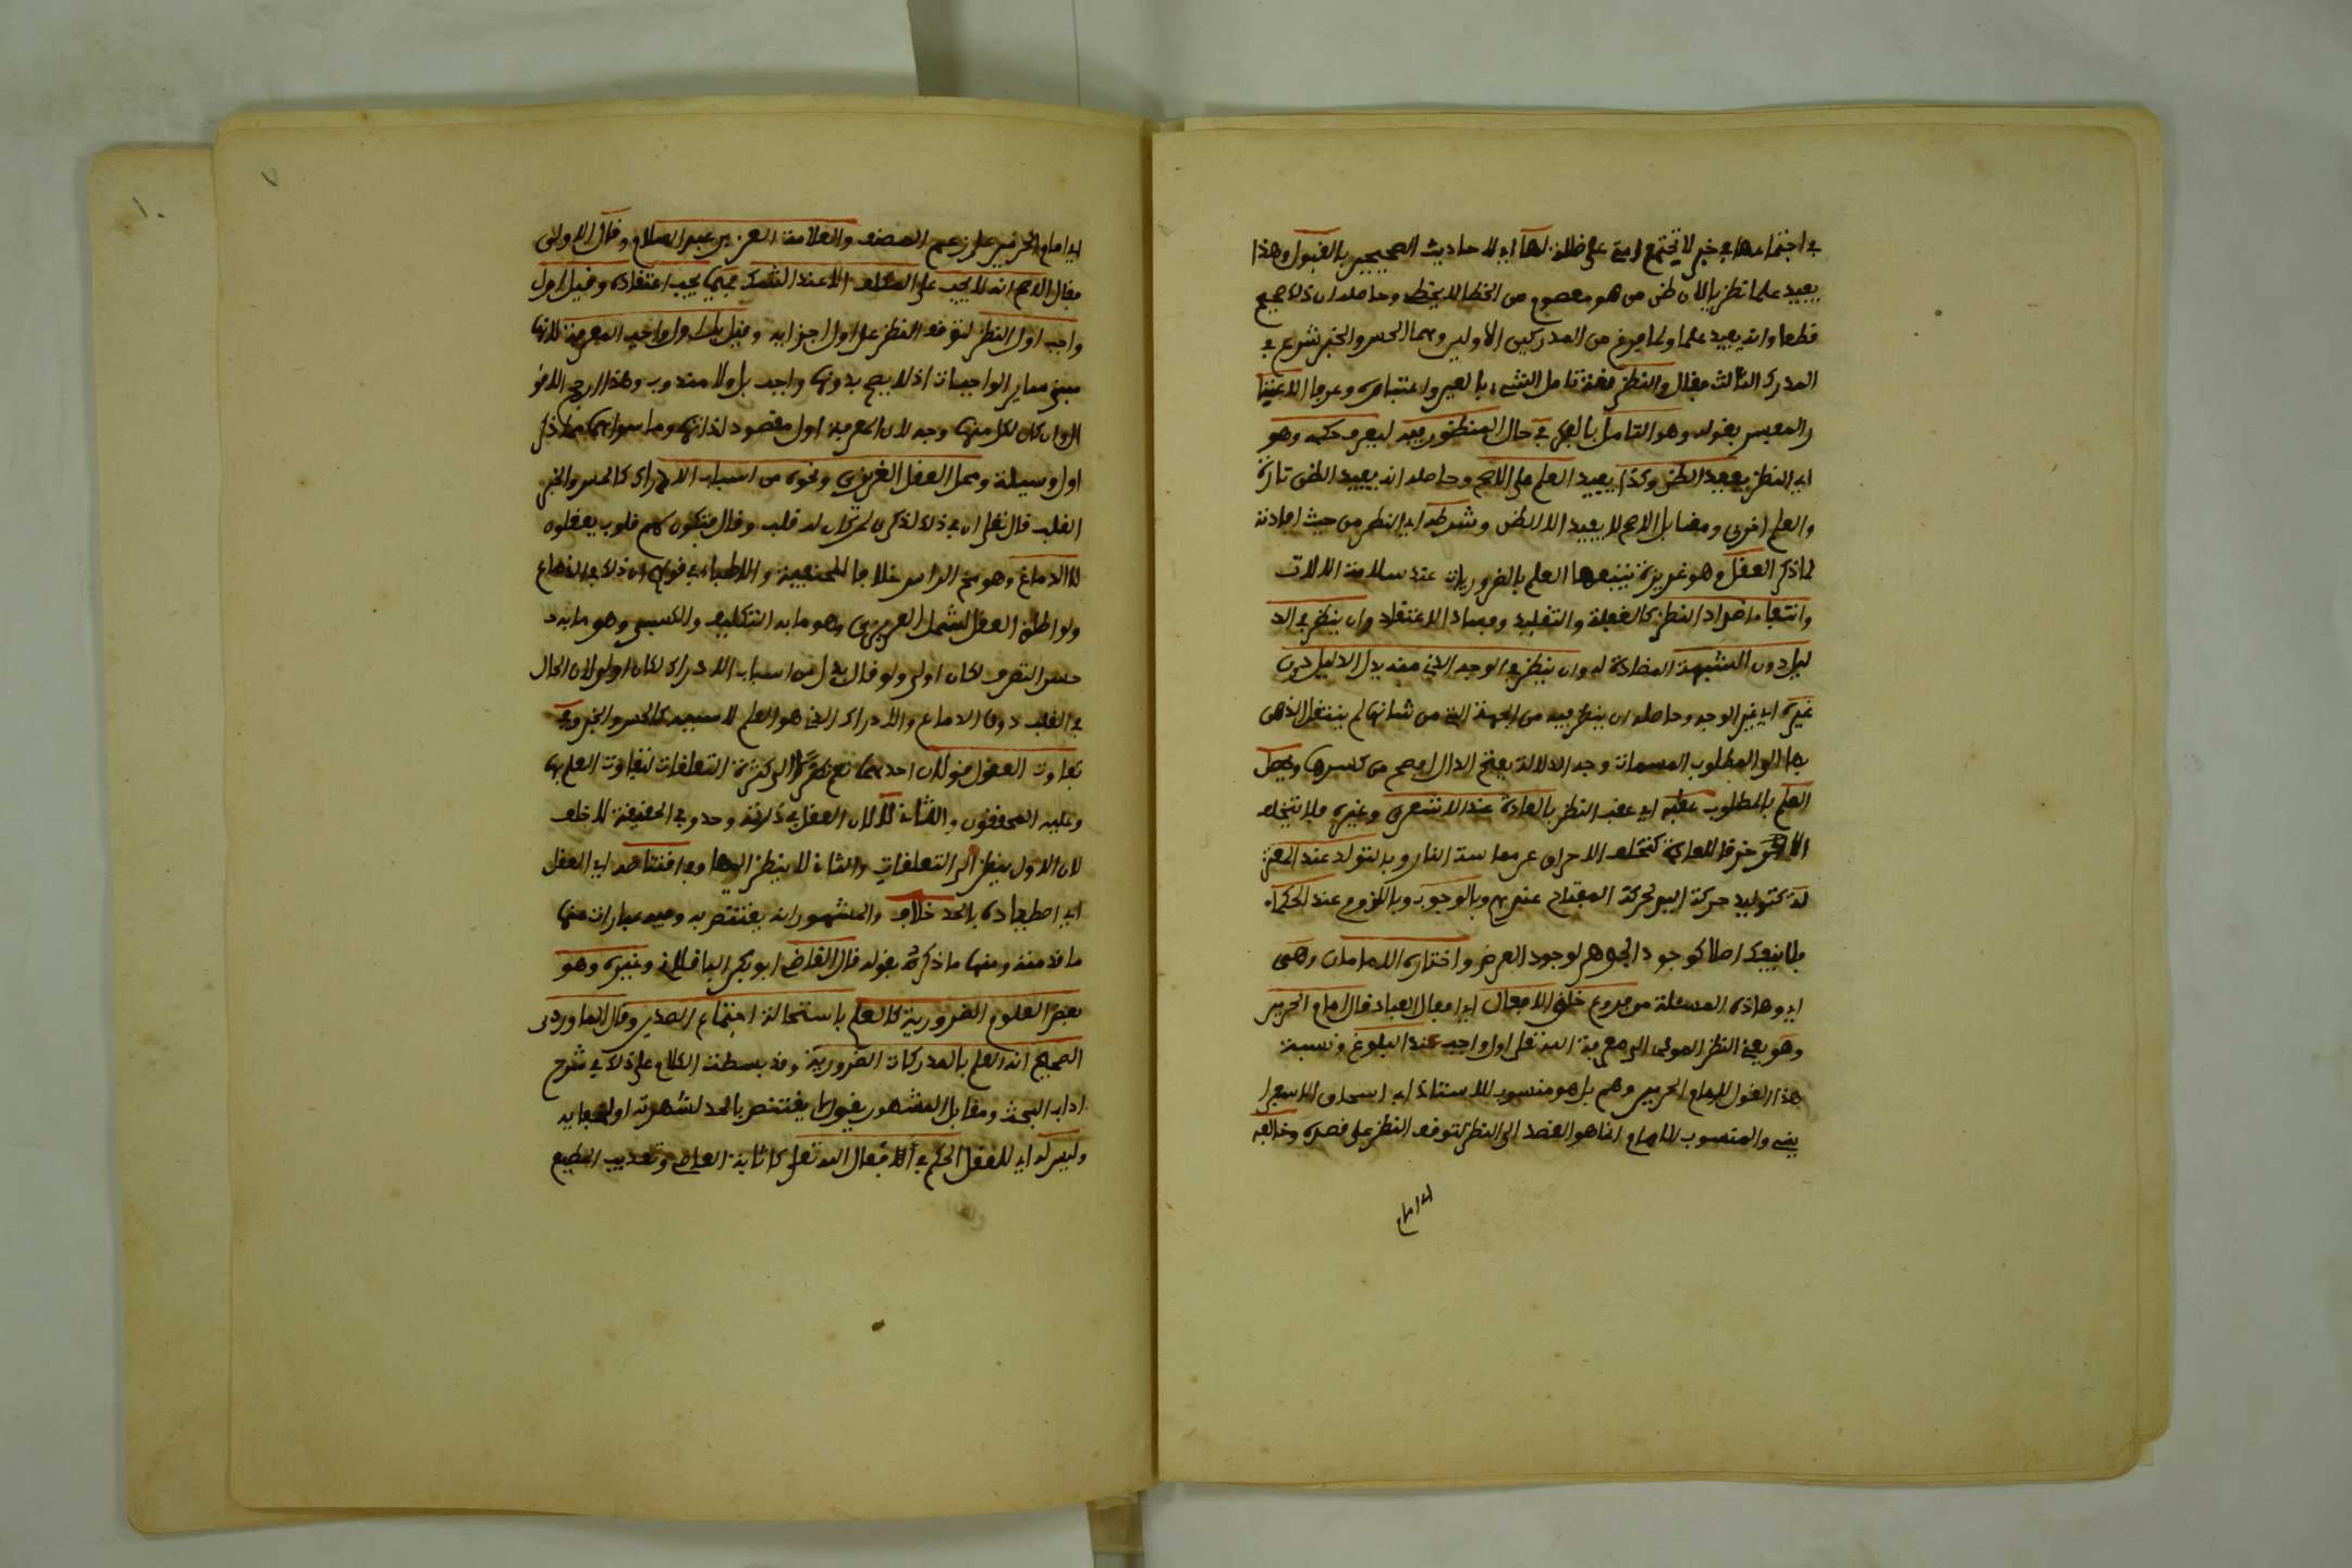 في اجتماعها في خبر لا تجتمع امتي على ضلالة لها اي للاحاديث الصحيحين بالقبول وهذا
يفيد علما نظريا لان ظن من هو معصوم من الخطا لا يخطى وحاصله ان ذلك صحيح
قطعا وانه يفيد علما ولما فرغ من المدركين الاولين وهما الحس والخبر شرع في
المدرك الثالث فقال والنظر لغة تامل الشيء بالعين واعتباره وعرفا
بقوله وهو التامل بالفكر في حال المنظور فيه ليعرف حكمه وهو
اي النظر يفيد الظن وكذا يفيد العلم على الاصح وحاصله انه يفيد الظن تارة
والعلم اخرى ومقابل الاصح لا يفيد الا الظن وشرطه اي النظر من حيث افادته
لما ذكر العقل وهو غريزة يتبعها العلم بالضروريات عند سلامة الالات
وانتفاء اضداد النظر كالغفلة والتقليد وفساد الاعتقاد وان ينظر في الد
ليل دون الشبهة المضادة له وان ينظر في الوجه الذي منه يدل الدليل دون
غيره اي غير الوجه وحاصله ان ينظر فيه من الجهة التي من شانها ان ينتقل الذهن
بها الى المطلوب المسمات وجه الدلالة بفتح الدال افصح من كسرها ويحصل
العلم بالمطلوب عقبه اي عقب النظر بالعادة عند الاشعري وغيره فلا يتخلف
الا خرقا للعادة كتخلف الاحراق عن مماسة النار وبالتولد عند المعتز
لة كتوليد حركة اليد لحركة المفتاح عندهم وبالوجوب وباللزوم عند الحكماء
فلا ينفك اصلا كوجود الجوهر لوجود العرض واختاره الامامان وهي
اي وهاذه المسئلة من فروع خلق الافعال اي افعال العباد قال امام الحرمين
وهو يعني النظر المودى الى معرفة الله تعلى اول واجب عند البلوغ ونسبة
هذا القول لامام الحرمين وهم بل هو منسوب للاستاذ ابي اسحاق الاسفرا
يني والمنسوب للامام انما هو القصد الى النظر لتوقف النظر على قصده وخالفه
اي امام
٧
اي امام الحرمين على زعم المصنف والعلامة العز بن عبد السلام وقال الاولى
فقال الاصح انه لا يجب على المكلف الا عند الشك فيما يجب اعتقاده وقيل اول
واجب اول النظر لتوقف النظر على اول اجزائه وقيل بل اول واجب المعرفة لانها
مبنى ساير الواجبات اذ لا يصح بدونها واجب بل ولا مندوب وهذا ارجح الاقو
ال وان كان لكل منها وجه لان المعرفة اول مقصود لذاتها وما سواها مما ذكر
اول وسيلة ومحل العقل الغريزي ونحوه من اسباب الادراك كالحس والخبر
القلب قال تعلى ان في ذلك لذكرى لمن كان له قلب وقال فتكون لهم قلوب يعقلون
لا الدماغ وهو مخ الراس خلافا للحنفية والاطباء في قولهم ان ذلك في الدماغ
ولو اطلق العقل لشمل الغريزي وهو ما به التكليف والكسبي وهو ما به
حسن التصرف لكان اولى ولو قال بدل من اسباب الادراك لكان اولى لان الحال
في القلب دون الدماغ والادراك الذي هو العلم لا سببه كالحس والخبر وفي
تفاوت العقول قولان احدهما نعم نظرا الى كثرة التعلقات لتفاوت العلم بها
وعليه المحققون والثاني لا لان العقل في ذاته واحد وفي الحقيقة لا خلف
لان الاول ينظر الى التعلقات والثاني لا ينظر اليها وفي اقتناصه اي العقل
اي اصطياده بالحد خلاف والمشهور انه يقتنص به وفيه عبارات منها
ما قدمته ومنها ما ذكره بقوله قال القاضي ابو بكر الباقلاني وغيره وهو
بعض العلوم الضرورية كالعلم باستحالة اجتماع الضدين وقال الماوردي
الصحيح انه العلم بالمدركات الضرورية وقد بسطت الكلام على ذلك في شرح
اداب البحث ومقابل المشهور يقول لا يقتنص بالحد لشهرته او لخفايه
وليس له اي للعقل الحكم في افعال الله تعلى كاثابة العاصي وتعذيب المطيع
١٠